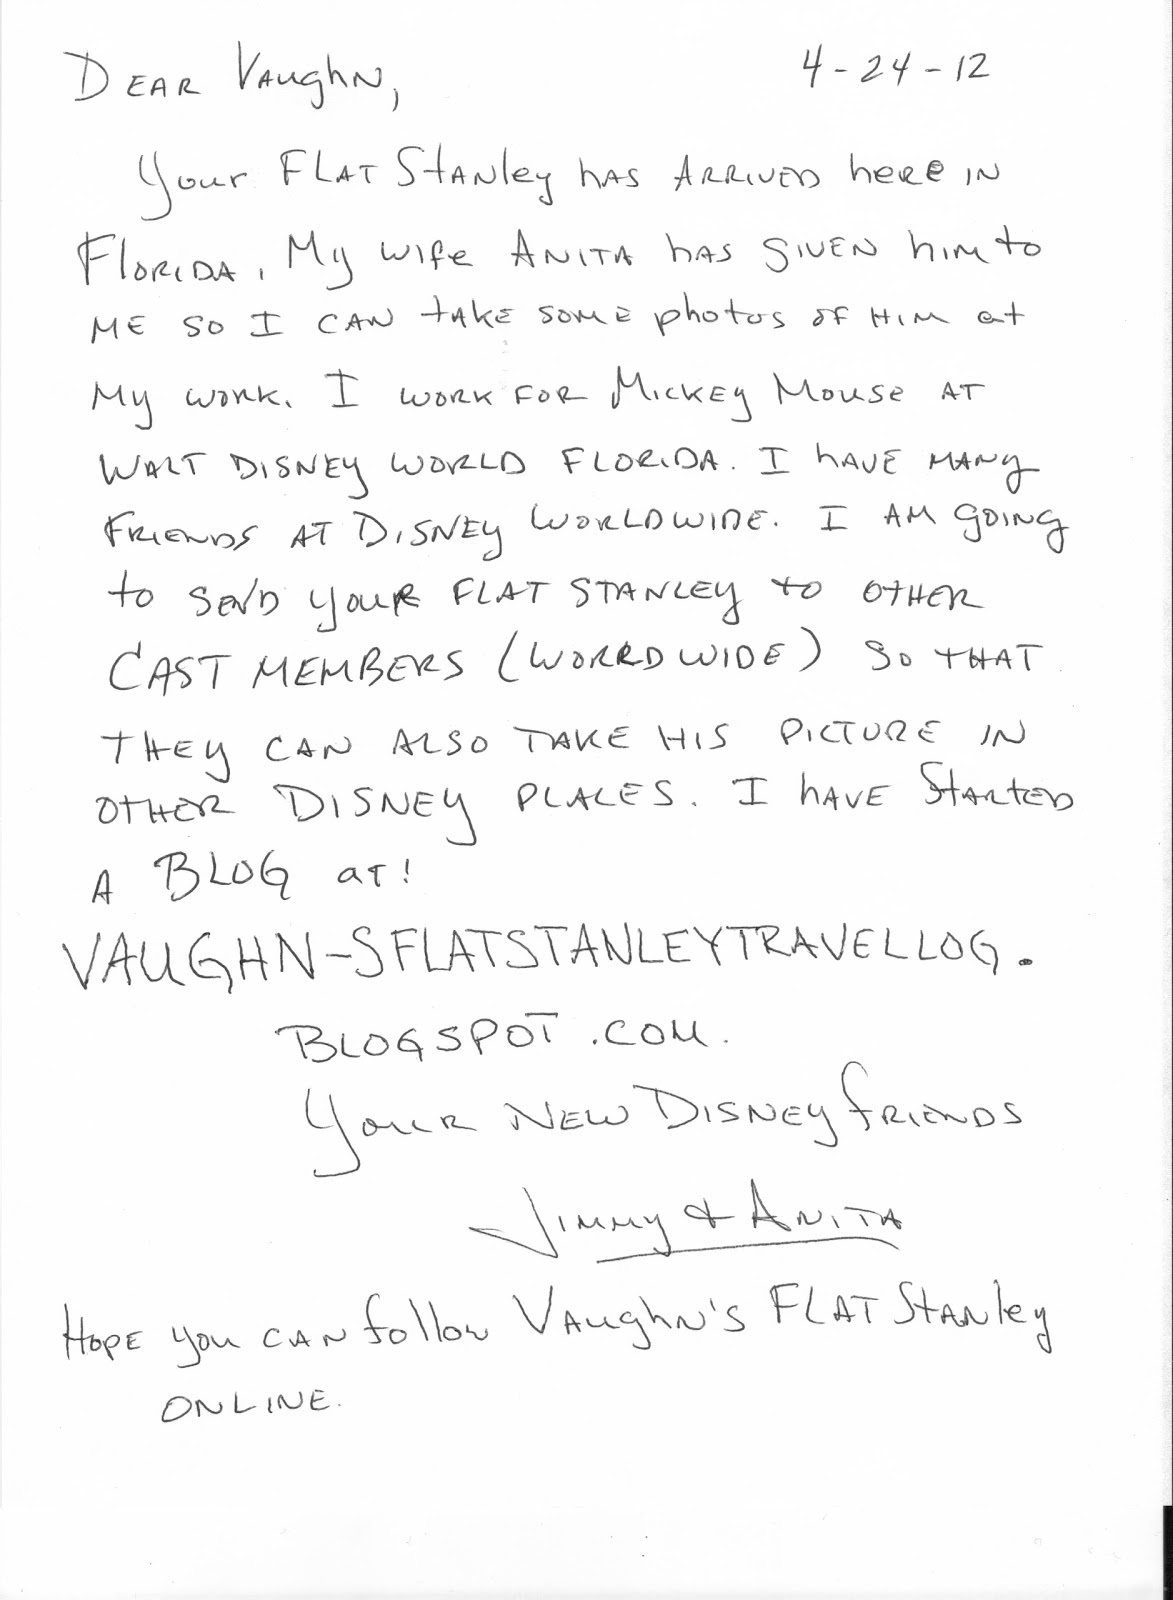 Dear Vaughn, 4-24-12
Your Flat Stanley has arrived here in
Florida. My wife Anita has given him to
me so I can take some photos of him at
my work. I work for Mickey Mouse at
Walt Disney World Florida. I have many
friends at Disney Worldwide. I am going
to send your Flat Stanley to other
Cast Members (Worrdwide) so that
they can also take his picture in
other Disney places. I have started
a Blog at!
VAUGHN-SFLATSTANLEYTRAVELLOG.
BLOGSPOT.COM.
Your New Disney friends
Jimmy & Anita
Hope you can follow Vaughn's Flat Stanley
online.